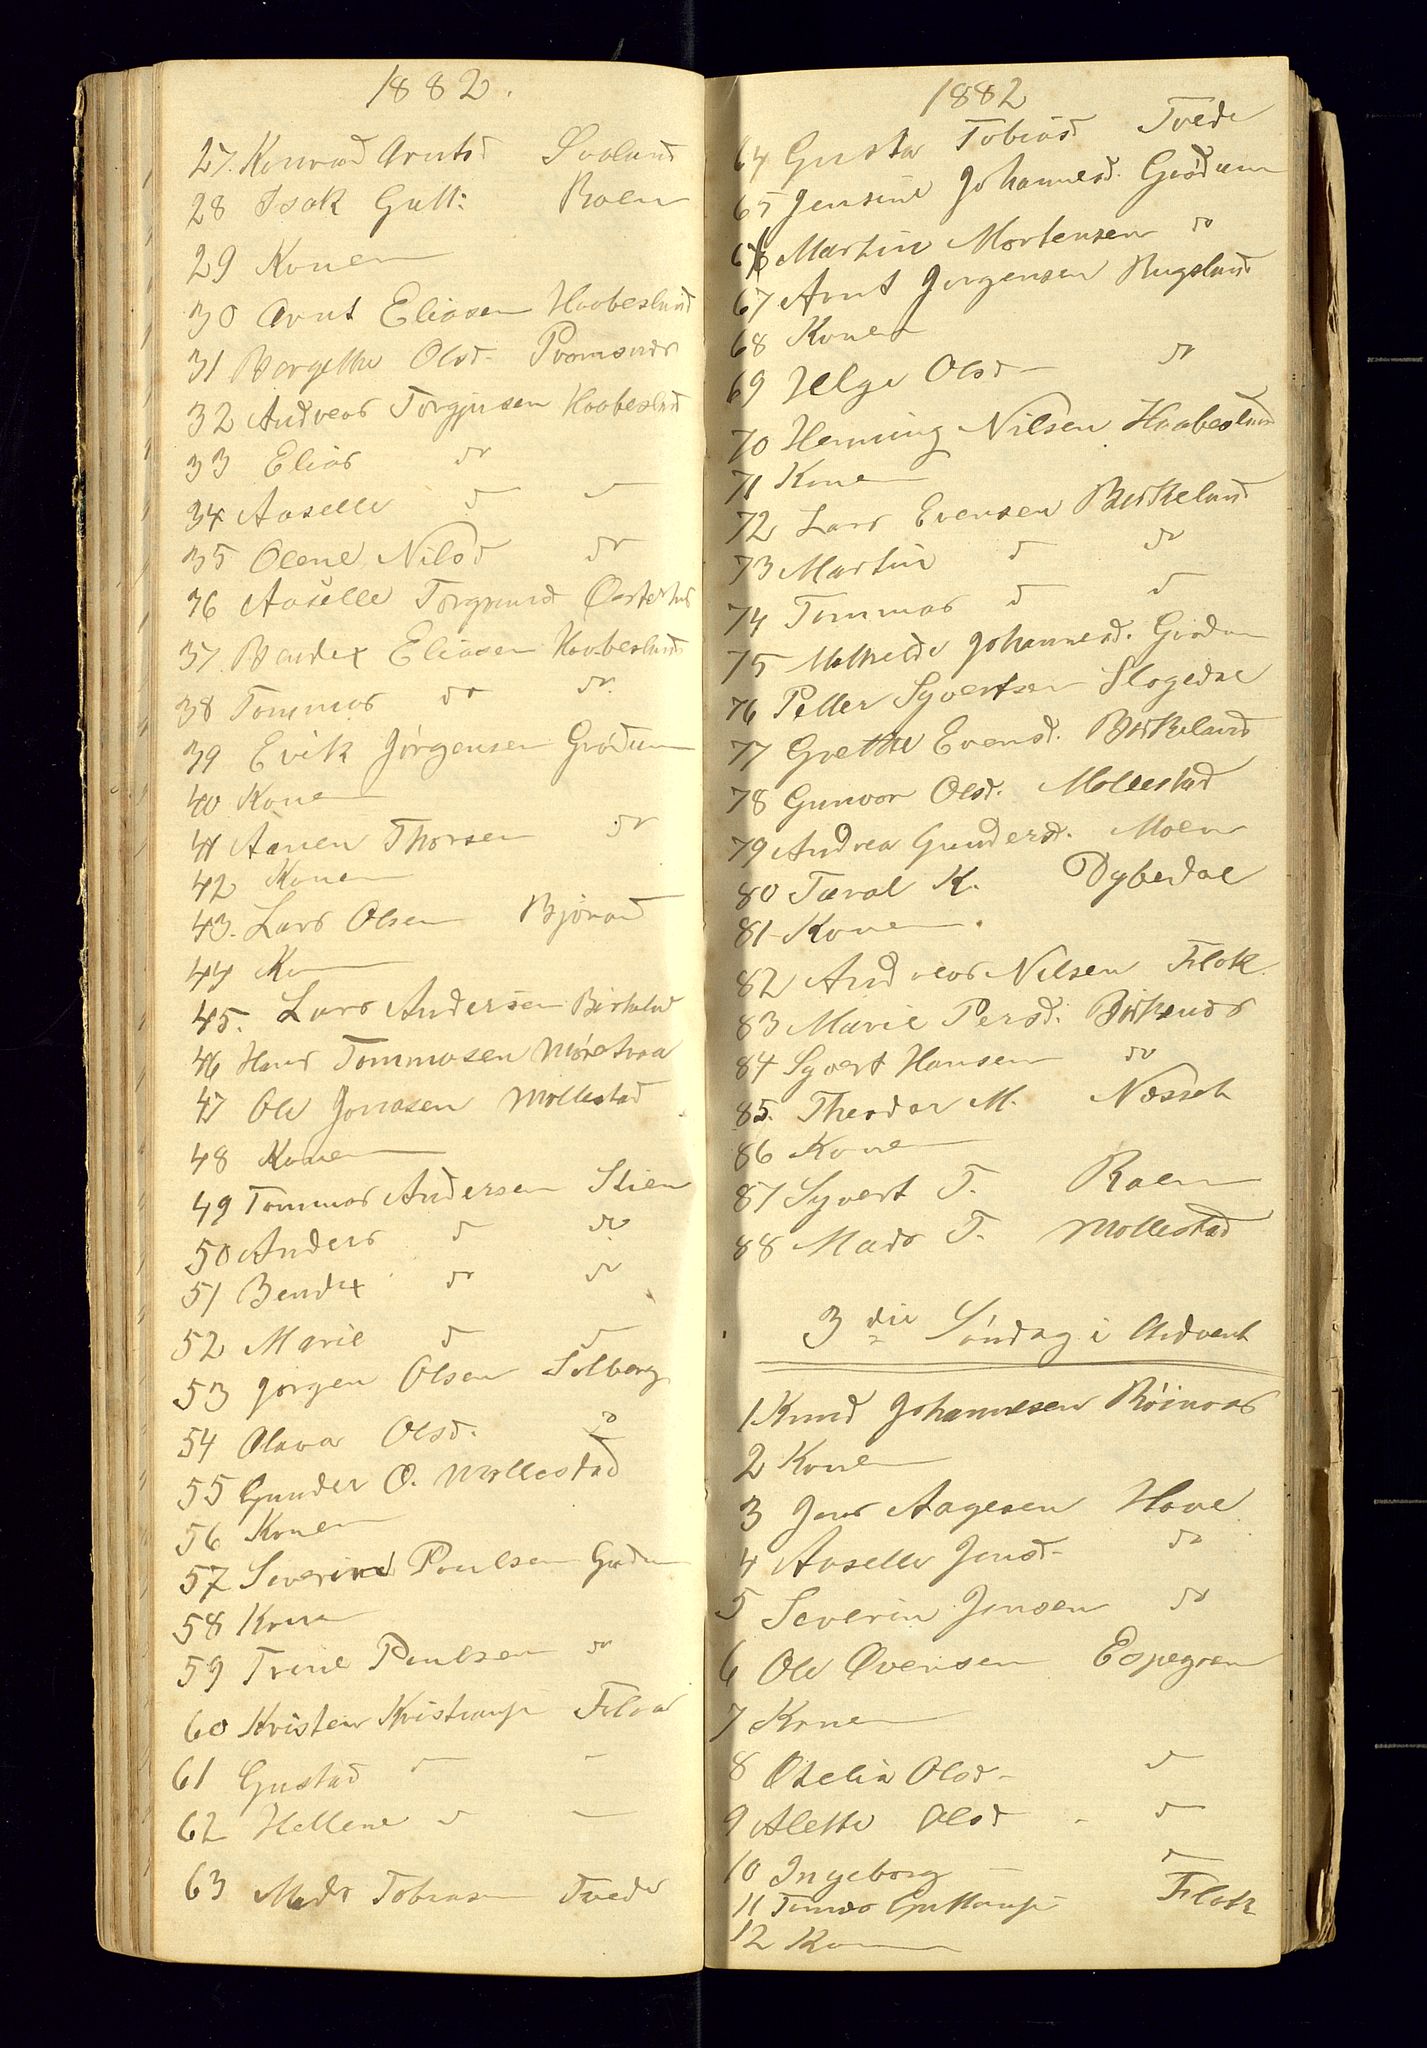 1882.
27. Konrad Arntsd Svaland
28 Isak Gutt: Roen
29 Konen
30 Arnt Eliasen Haabesland
31 Bergethe Olsd.
32 Andreas Torgjusen Haabesland
33 Elias do
34 Aaselle do -
35 Olene Nilsd do
36 Aaselle Østerhus
37. Bendex Eliasen Haabesland
38 Tommas do do
39 Erik Jørgensen Grødum
40 Konen
41 Aanen Thorsen do
42 Konen
43. Lars Olsen Bjoraa
44 Ko
45. Lars Andersen Birkelnd
46 Hans Tommasen
47 Ole Jonasen Mollestad
48 Konen
49 Tommas Andersen Stien
50 Anders do do
51 Bendex do do
52 Marie do do
53 Jørgen Olsen Solberg
54 Olava Olsd. do
55 Gunder O. Mollestad
56 Konen
57 Severin Poulsen Grødum
58 Konen
59 Trine Poulsen do
60 Kristen Kristiansen
61 Gustad do -
62 Hellene do -
63 Mads Tobiasen Tvede
1882
64 Gusta Tobiasd Tvede
65 Jensine Johannesd. Grødum
66 Martin Mortensen do
67 Arnt Jørgensen Rugsland
68 Konen
69 Helge Olsd do
70 Henning Nilsen Haabesland
71 Konen
72 Lars Evensen Birkeland
73 Martin do do
74 Tommas do do
75 Mathilde Johannesd. Grødum
76 Petter Syvertsen Slogedal
77 Grethe Evensd. Birkeland
78 Gunvor Olsd. Mollestad
79 Andrea Gundersd. Moen
80 Taral K. Dybedal
81 Konen.
82 Andreas Nilsen Flak
83 Marie Persd. Birkenes
84 Syvert Hansen do
85. Theodor M.
86 Konen
87 Syvert T. Roen
88 Mads T. Mollestad
3die Søndag i Advent
1 Knud Johannesen Røinaas
2 Konen
3 Jens Aagesen Hove
4 Aaselle Jensd. do
5 Severin Jensen do
6 Ole Evensen Espegren
7 Konen
8 Otelia Olsd. do
9 Alette Olsd do
10 Ingeborg - do
11 Flak
12 Konen